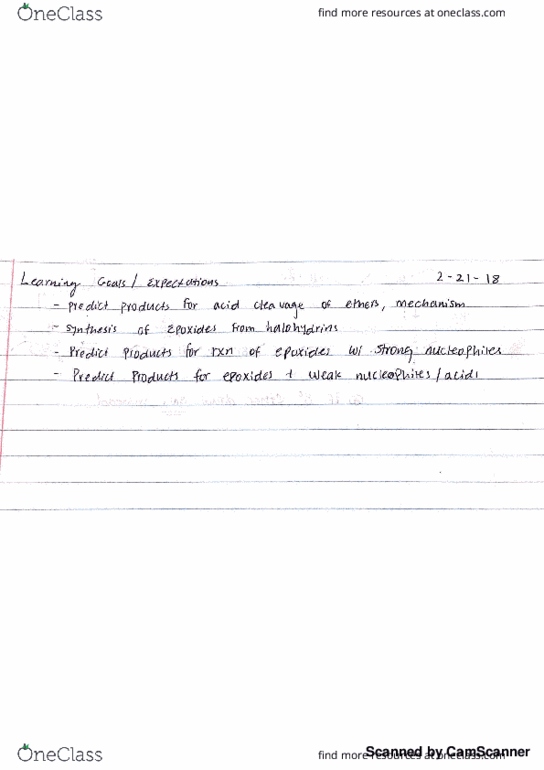 OneClass find more resources at oneclass.com
Learning Goals / Expectations 2-21-18
- predict products for acid cleavage of ethers, mechanism
- synthesis of epoxides from halohydrins
- Predict products for rxn of epoxides w/ strong nucleophiles
- Predict Products for epoxides + weak nucleophiles/acids
OneClass find more resources at oneclass.com
Scanned by CamScanner